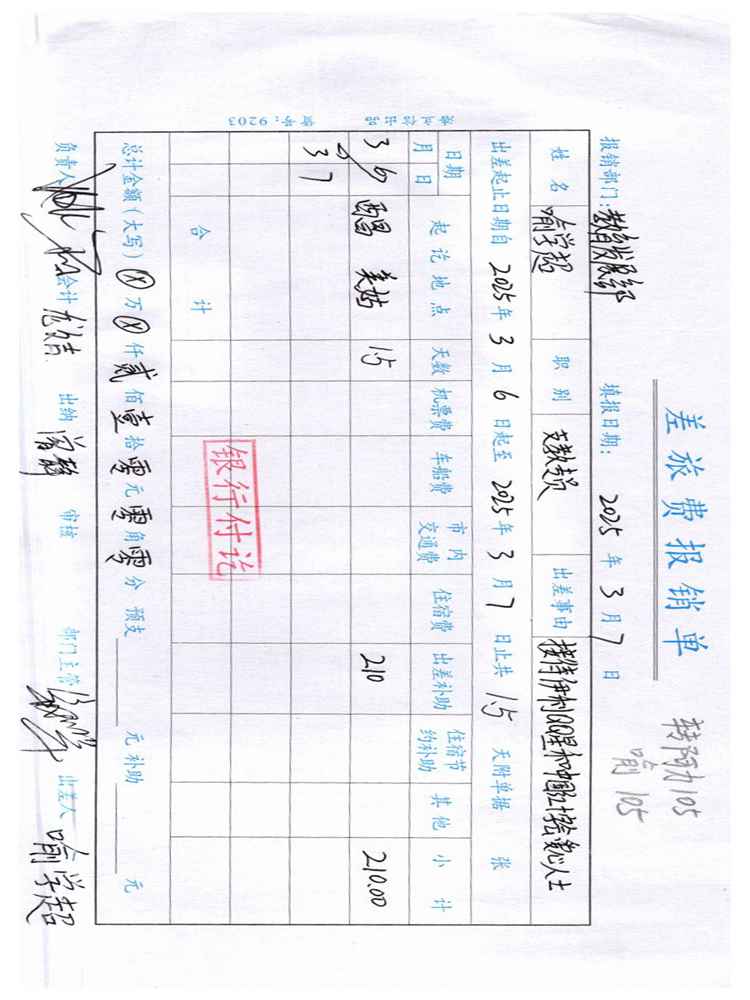 差旅费报销单
转阿力105
喻 105
报销部门：教育发展部 填报日期： 2025 年 3 月 7 日
姓名 喻学超 职别 支教专员 出差事由
出差起止日期自 2025 年 3 月 6 日起至 2025 年 3 月 7 日止共 1.5 天附单据 张
日期 起讫地点 天数 机票费 车船费 市内交通费 住宿费 出差补助 住宿节约补助 其他 小计
月 日
3 6 西昌 美姑 1.5 210 210.00
3 7
合计
银行付讫
总计金额（大写）⊗万⊗仟贰佰壹拾零元零角零分 预支 元 补助 元
负责人 会计 出纳 曾静 审核 部门主管 出差人 喻学超
编号：9203